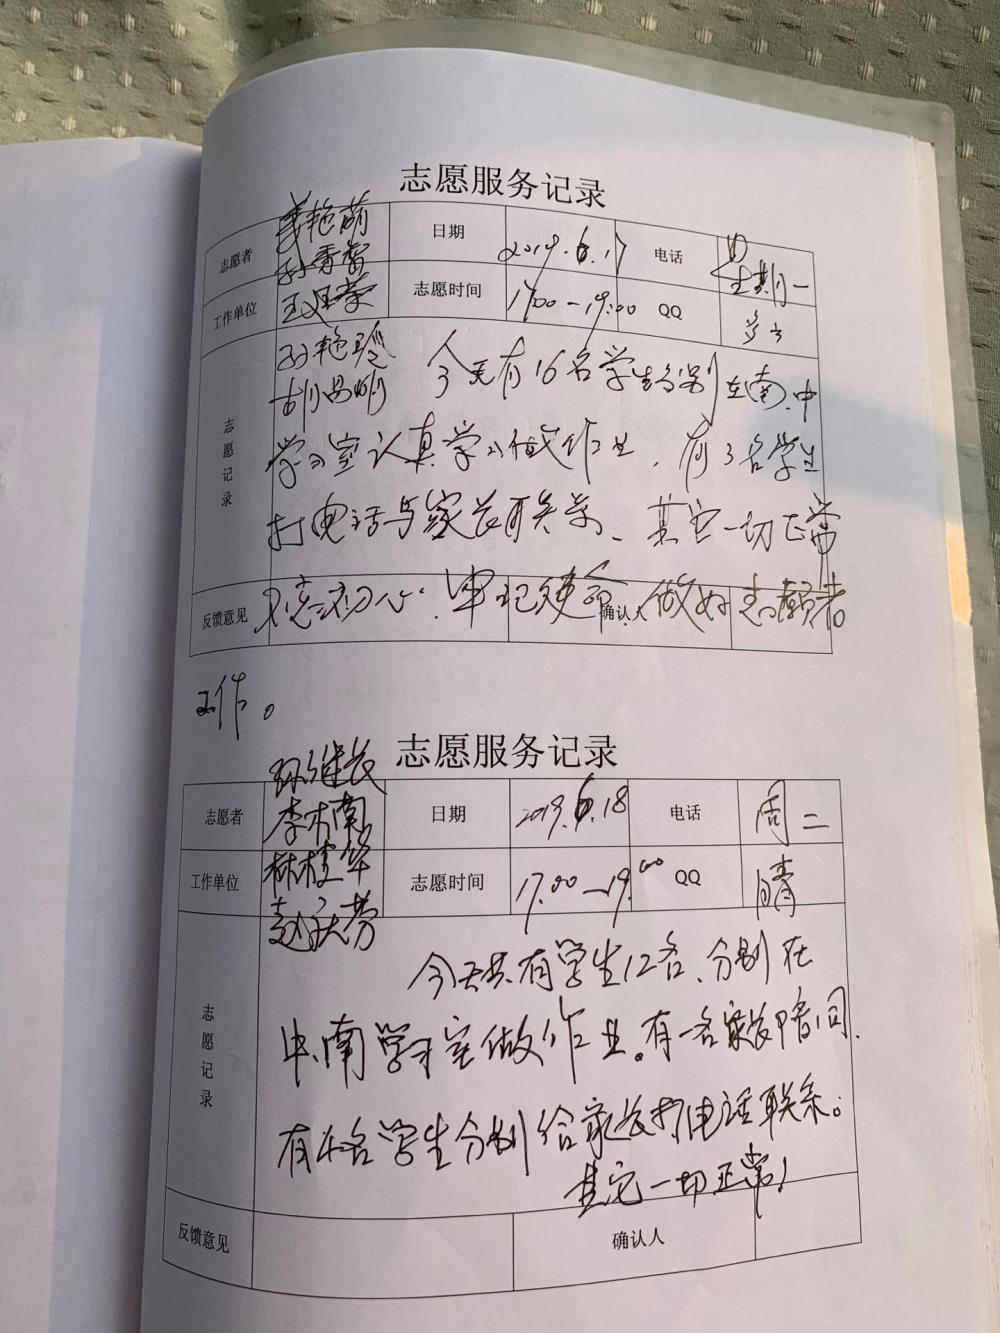 志愿服务记录
志愿者 艳萌 日期 2019.6.17 电话 星期一
孙秀
工作单位 王 荣 志愿时间 17:00-19:00 QQ 多云
孙艳玲
胡昌明
志愿记录
今天有16名学生分别在南、中
学习室认真学习做作业，有3名学生
打电话与家长联系、其它一切正常
反馈意见 确认人
不忘初心、牢记使命 做好志愿者
工作。
志愿服务记录
孙继长
志愿者 李木南 日期 2019.6.18 电话 周二
工作单位 林桂华 志愿时间 17.00-19.00 QQ 晴
赵秋芳
志愿记录
今天共有学生12名、分别在
中、南学习室做作业。有一名家长陪同.
有 名学生分别给家长打电话联系。
其它一切正常！
反馈意见 确认人